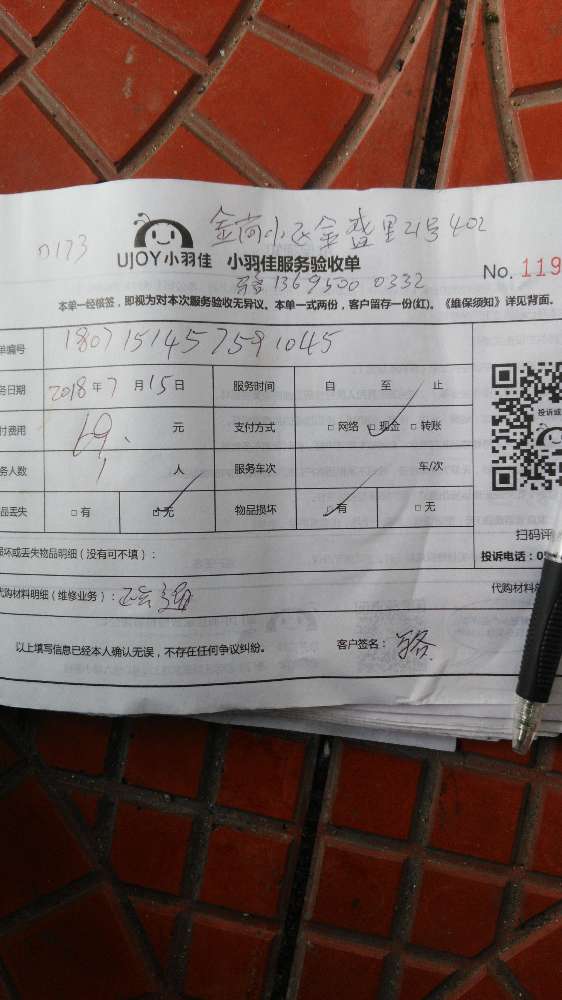 金尚小区金盛里21号402
0173
UJOY小羽佳 小羽佳服务验收单
13695000332
No. 119
本单一经核签，即视为对本次服务验收无异议。本单一式两份，客户留存一份(红)。《维保须知》详见背面。
单编号 1807151457591045
务日期 2018年7月15日 服务时间 自 至 止
付费用 69. 元 支付方式 □网络 □现金 □转账
务人数 1 人 服务车次 车/次
品丢失 □有 □无 物品损坏 □有 □无
投诉或
扫码评
投诉电话：05
损坏或丢失物品明细（没有可不填）：
代购材料明细（维修业务）：
代购材料总
以上填写信息已经本人确认无误，不存在任何争议纠纷。 客户签名：